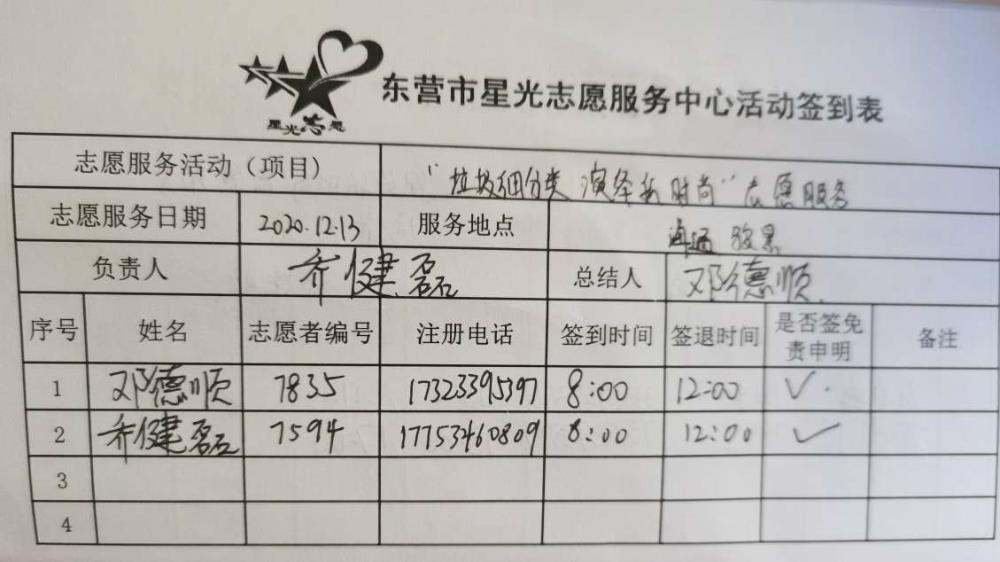 星光志愿
东营市星光志愿服务中心活动签到表
志愿服务活动（项目） “垃圾细分类 演绎新时尚”志愿服务
志愿服务日期 2020.12.13 服务地点 海通
负责人 乔健磊 总结人 邓德顺
序号 姓名 志愿者编号 注册电话 签到时间 签退时间 是否签免责申明 备注
1 邓德顺 7835 17323395397 8:00 12:00 ✓
2 乔健磊 7594 17753460809 8:00 12:00 ✓
3
4